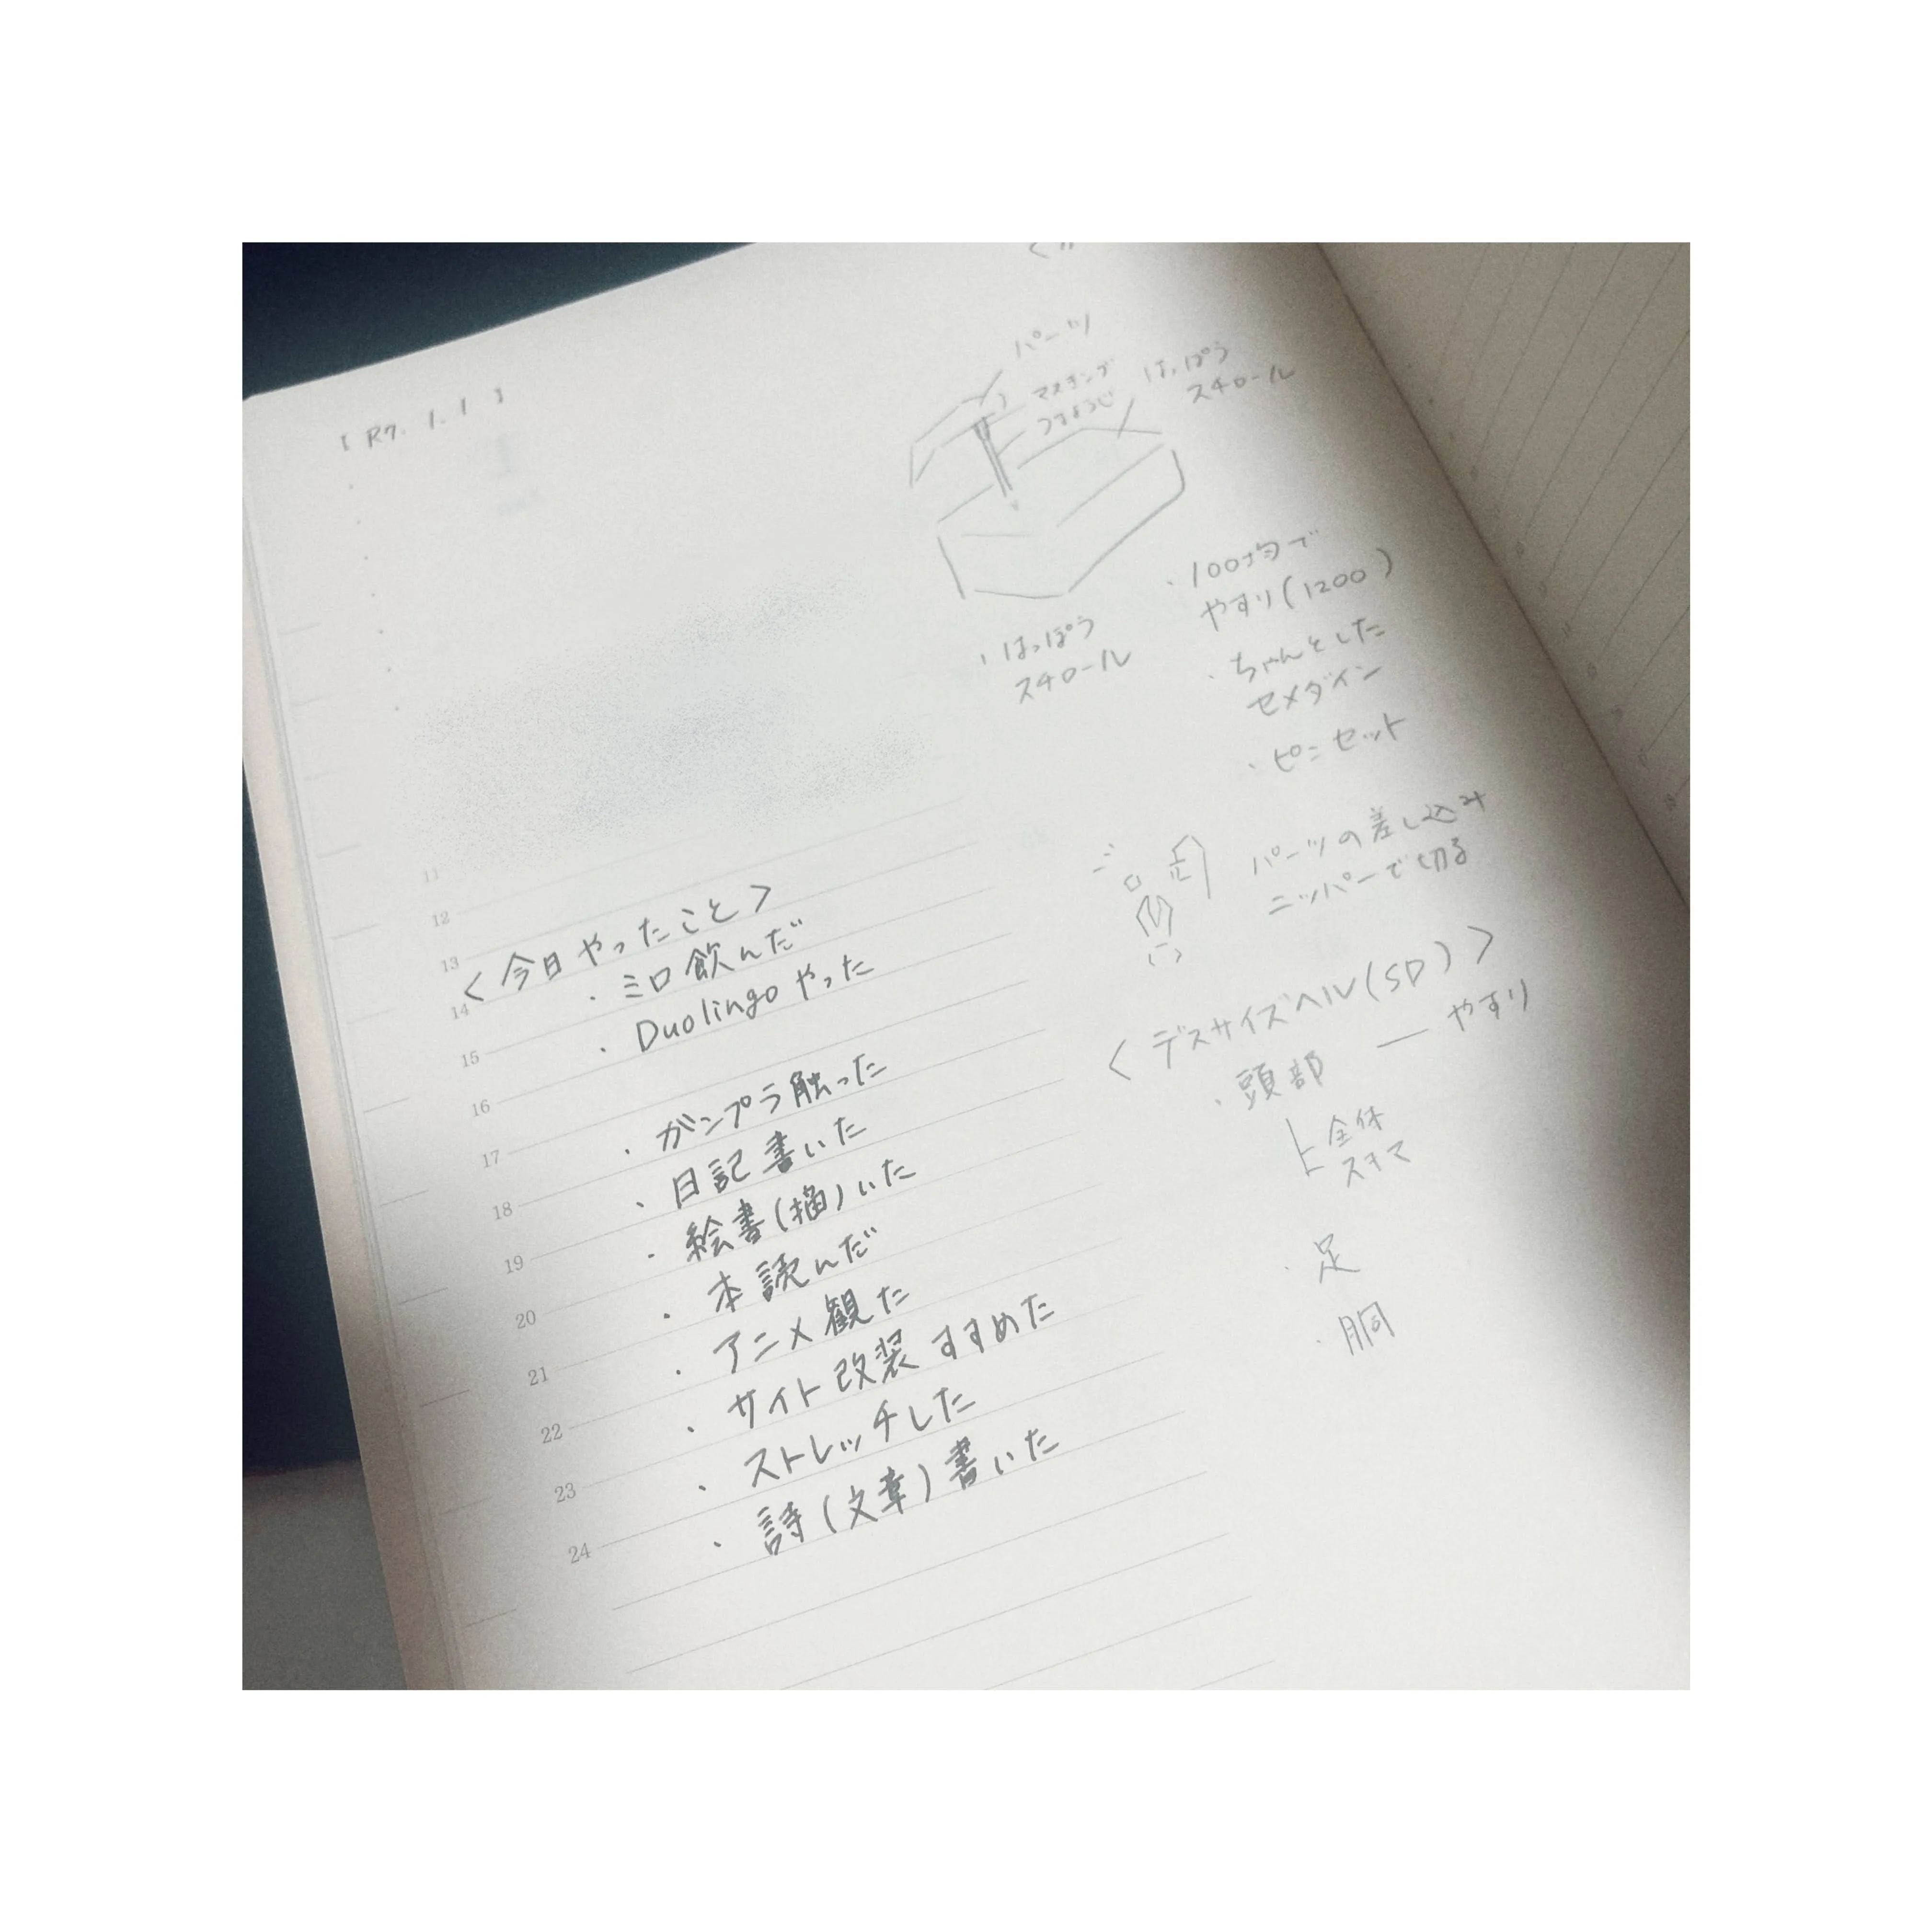 [R7. 1. 1]
パーツ
マスキング
つまようじ
はっぽう
スチロール
・はっぽう
スチロール
・100均で
やすり(1200)
・ちゃんとした
セメダイン
・ピンセット
パーツの差し込み
ニッパーで切る
<デスサイズヘル(SD)>
・頭部 — やすり
全体
スキマ
・足
・胴
11
12
13
14
15
16
17
18
19
20
21
22
23
24
<今日やったこと>
・ミロ飲んだ
・Duolingoやった
・ガンプラ触った
・日記書いた
・絵書(描)いた
・本読んだ
・アニメ観た
・サイト改装すすめた
・ストレッチした
・詩(文章)書いた